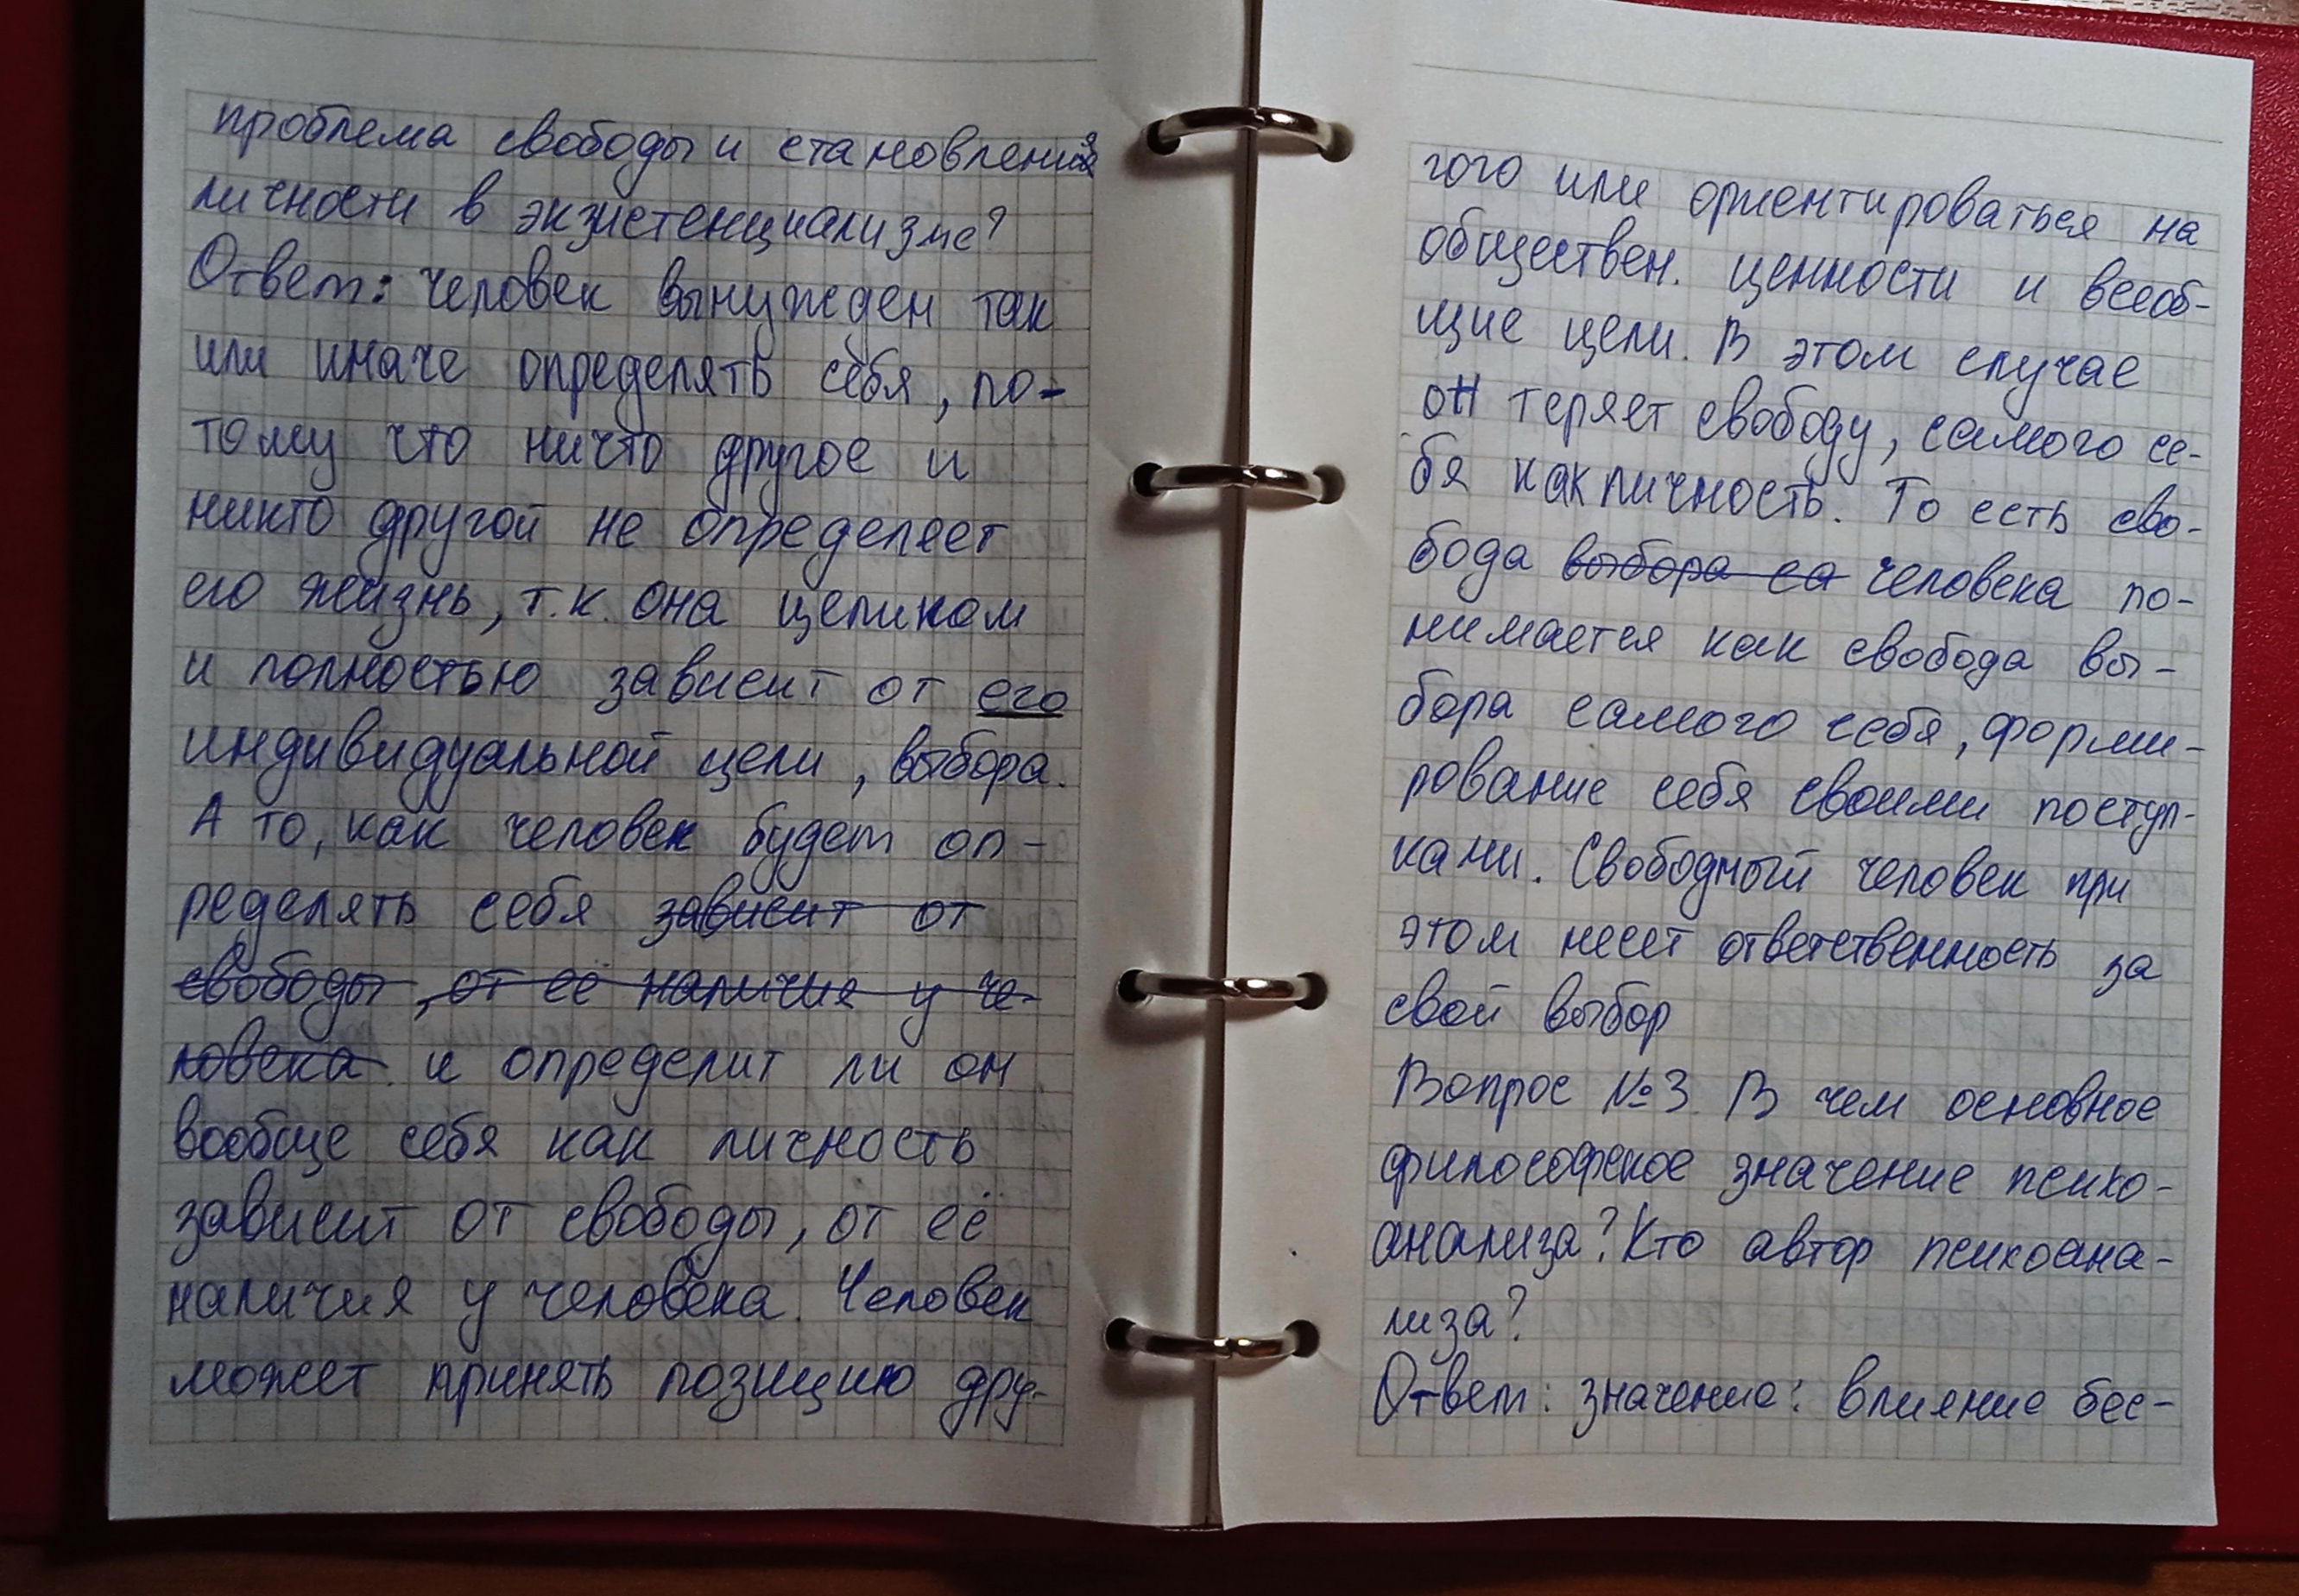 проблема свободы и становления
личности в экзистенциализме?
Ответ: человек вынужден так
или иначе определять себя, по-
тому что ничто другое и
никто другой не определяет
его жизнь, т.к. она целиком
и полностью зависит от его
индивидуальной цели, выбора.
А то, как человек будет оп-
ределять себя зависит от
свободы, от её наличия у че-
ловека и определит ли он
вообще себя как личность
зависит от свободы, от её
наличия у человека. Человек
может принять позицию дру-
гого или ориентироваться на
обществен. ценности и всеоб-
щие цели. В этом случае
он теряет свободу, самого се-
бя как личность. То есть сво-
бода выбора са человека по-
нимается как свобода вы-
бора самого себя, форми-
рование себя своими поступ-
ками. Свободный человек при
этом несет ответственность за
свой выбор
Вопрос №3 В чем основное
философское значение психо-
анализа? Кто автор психоана-
лиза?
Ответ: значение: влияние бес-